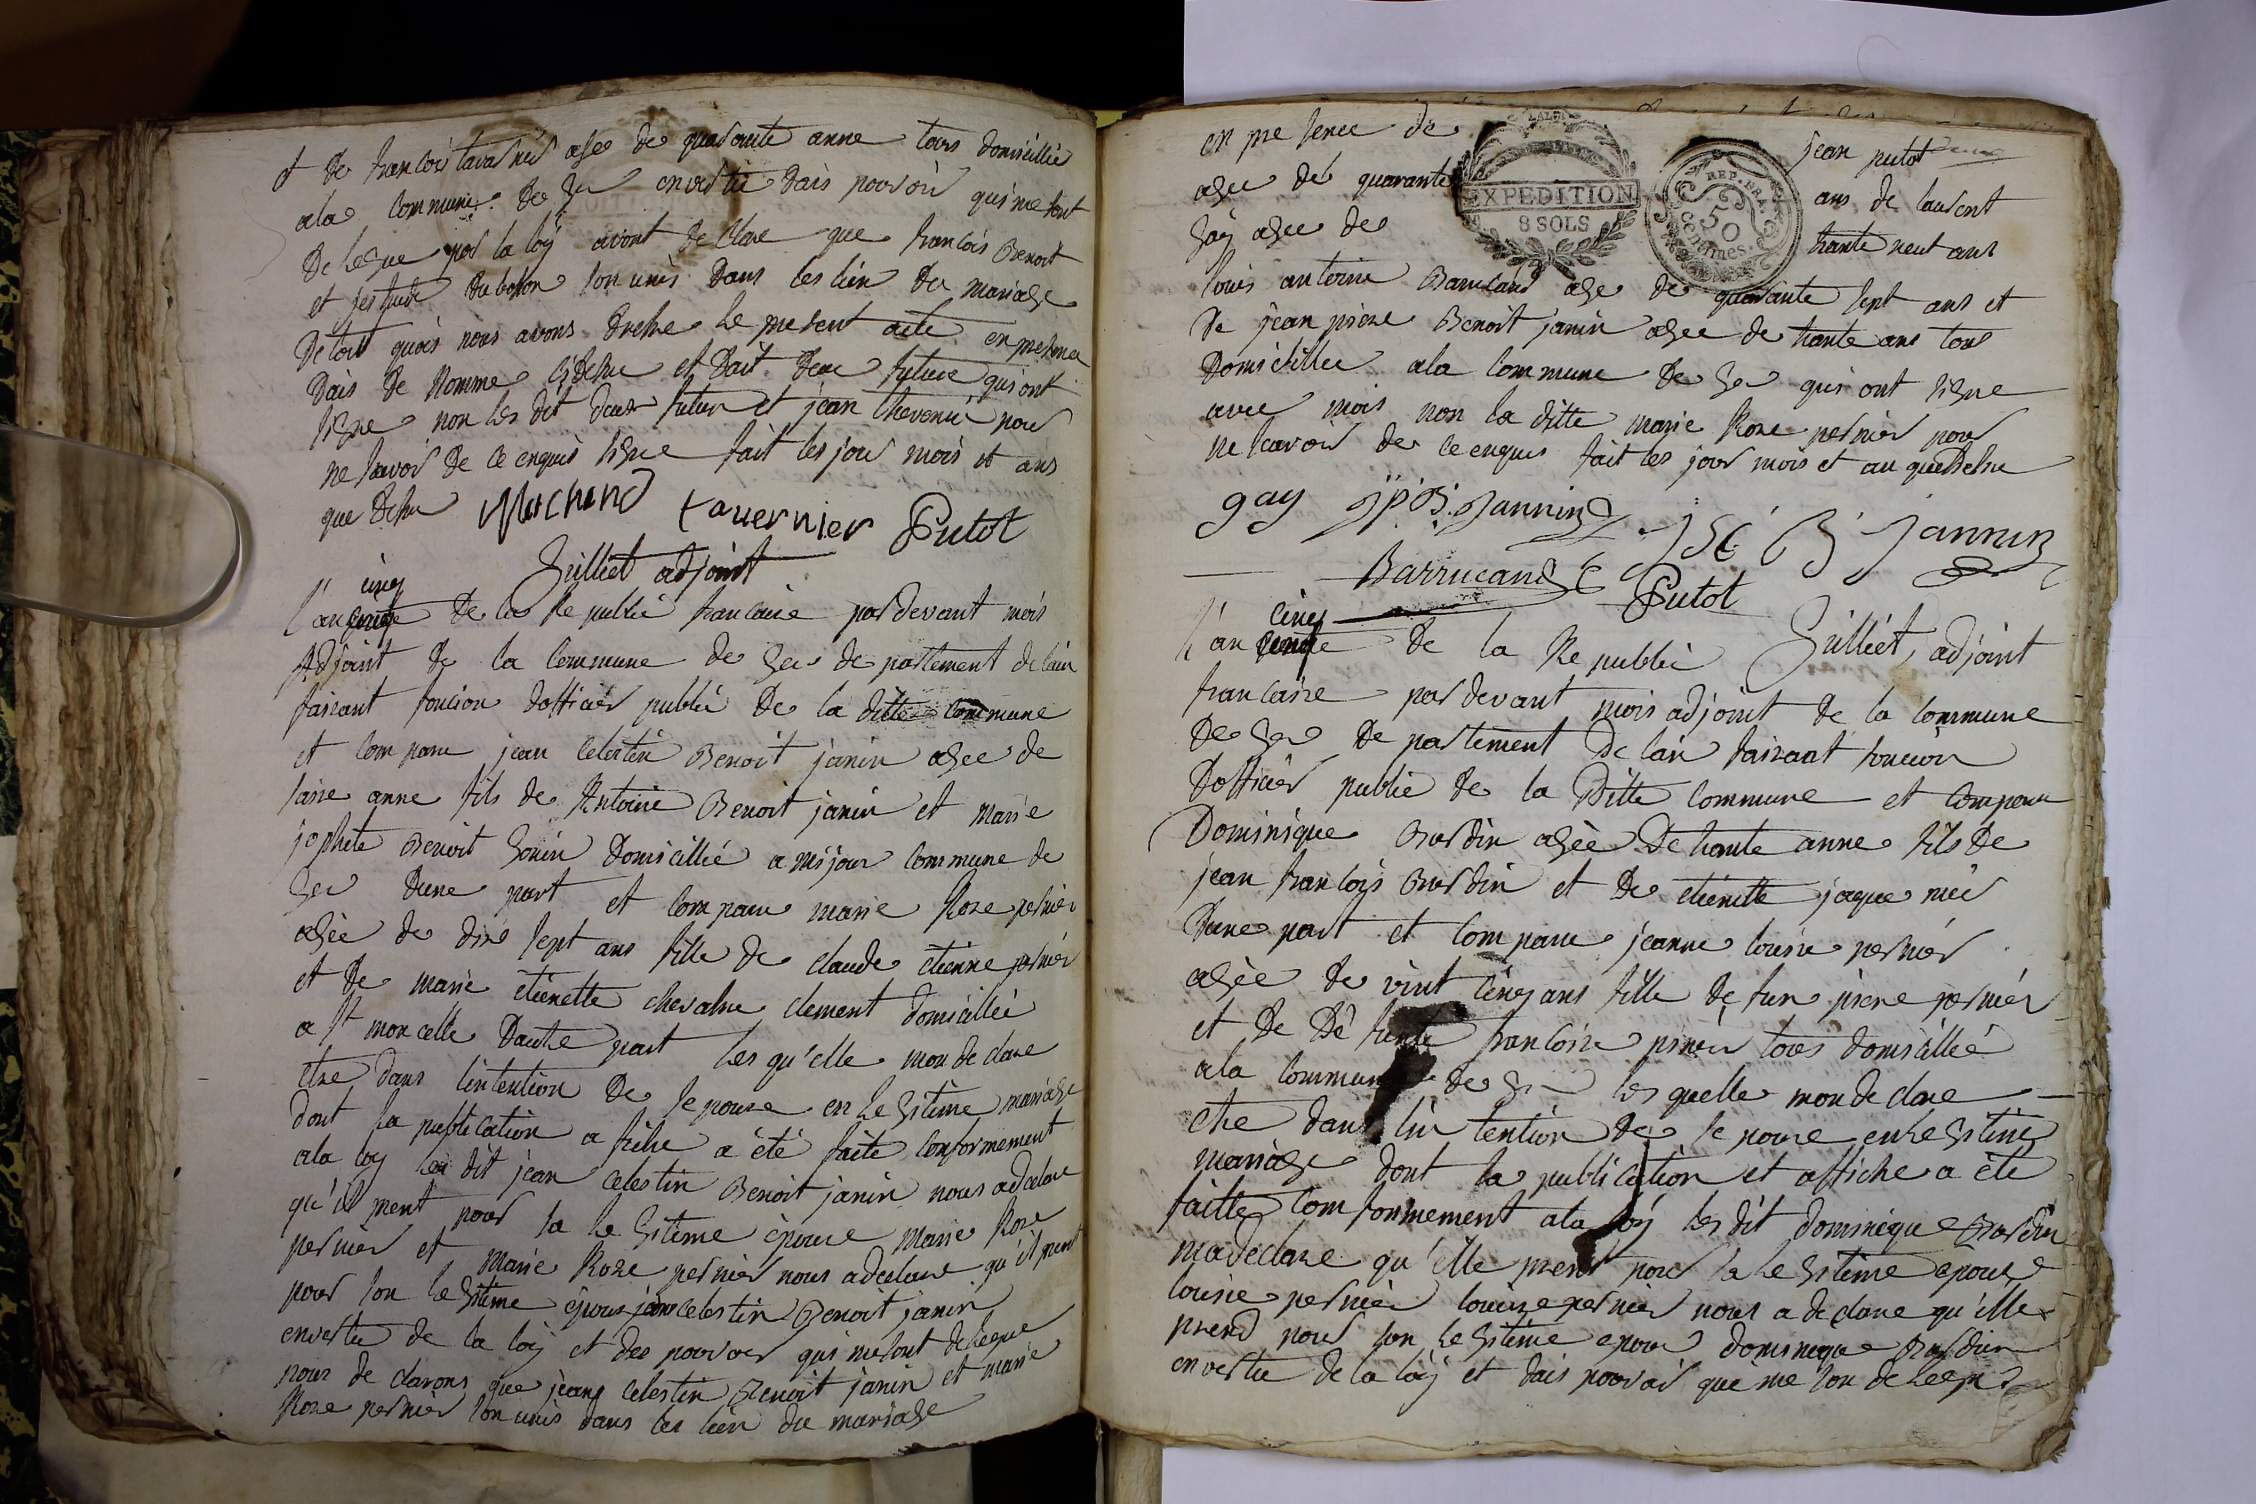 et de francois tavarnié agee de quarante anne tous domicillié
ala commune de Gex en vertu dais pouvoir qui me sont
delegue par la loÿ avont declare que francois Benoit
et jertrude du boson son unis dans les lien du mariage
de tout quois nous avons dresse le present acte en presence
dais de nomme cÿ desue et dait deux future qui ont
signe non les dit deux futur et jean thevenié pour
ne savoir de ce enquis signe fait les jour mois et ans
que desu Muchand tavernier Putot
Grilliet adjoint
cinq
l'an de la Republi francaise par devant mois
adjoint de la commune de Gex de partement de lain
faisant foncion dofficier publie de la ditte commune
et compare jean celestin Benoit janin agee de
saise anne fils de Antoine Benoit janin et marie
josephete Benoit Gonin domicillié a mijour commune de
Gex dune part et compare marie Rose pernier
agèe de dix sept ans fille de claude etienne pernier
et de marie etienette chevalse clement domicilleé
a st moncelle dautre part les qu'elle mon declare
etre dans l'intention de se pouse en legitime mariage
dont la publication a fiche a été faite conformement
ala loy le dit jean celestin Benoit janin nous a declare
qu'il prent pour sa legitime épouse marie Rose
pernier et marie Rose pernier nous a declare qu'il prent
pour son legitime epoux jean celestin Benoit janin
en vertu de la loÿ et des pouvoir qui me sont delegue
nous declarons que jean celestin Benoit janin et marie
Rose pernier son unis dans les lien du mariage
en presence de jean putot
agee de quarante ans de laurent
Gaÿ agee de trante neuf ans
EXPEDITION
8 SOLS
REP. FRA.
50
centimes.
louis antoine Barucand age de quarante sept ans et
de jean piere Benoit janin agee de trante ans tous
domicillié ala commune de Gex qui ont signe
avec mois non la ditte marie Rose pernier pour
ne savoir de ce enquis fait les jour mois et an que desu
gay JPB. Jannin J C B Jannin
Barrucand Putot
Grilliet, adjoint
cinq
l'an de la Republi
francaise par devant mois adjoint de la commune
de Gex de partement de lain faisant foncion
dofficier publie de la ditte commune et compare
Dominique Grosdin agèe de trante anne fils de
jean francois Grosdin et de etienette jaquenié
dune part et compare jeanne louise pernier
agèe de vint cinq ans fille de feu piere pernier
et de dé funte francoise tous domicillié
ala commune de Gex les quelle mon declare
etre dans lin tention de se pouse en legitime
mariage dont la publication et affiche a èté
faitte comformement ala loÿ les dit dominique Grosdin
ma declare qu'elle prent pour sa legitime epouse
louise pernier louise pernier nous a declare qu'elle
prend pour son legitime epoux dominique Grosdin
en vertu de la loÿ et dais pouvoir que me son delegue